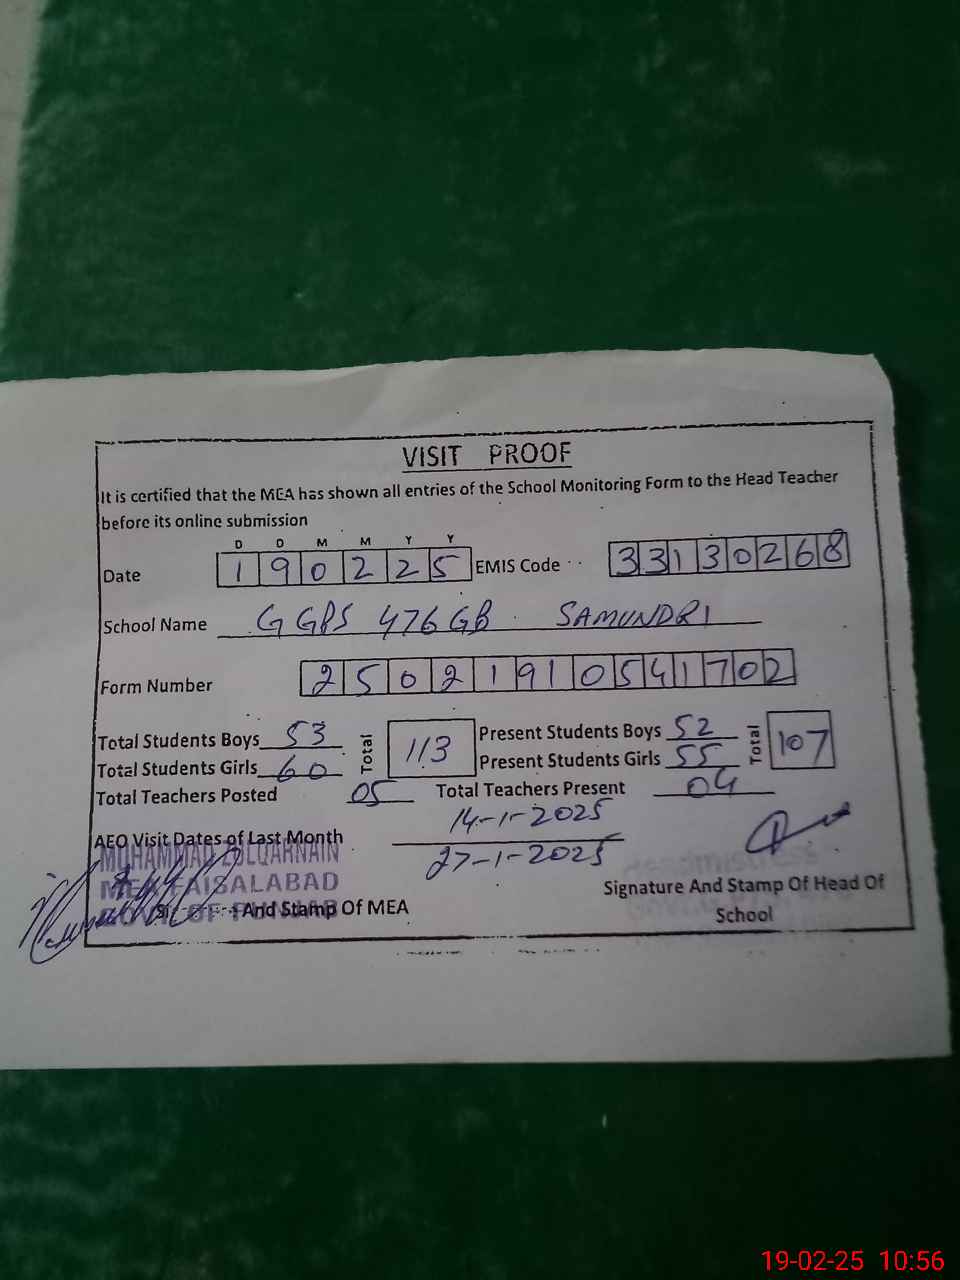 VISIT PROOF
It is certified that the MEA has shown all entries of the School Monitoring Form to the Head Teacher
before its online submission
D D M M Y Y
Date 190225 EMIS Code 33130268
School Name GGPS 476 GB SAMUNDRI
Form Number 25021910541702
Total Students Boys 53 Total 113 Present Students Boys 52 Total 107
Total Students Girls 60 Present Students Girls 55
Total Teachers Posted 05 Total Teachers Present 04
14-1-2025
AEO Visit Dates of Last Month
27-1-2025
MUHAMMAD ZULQARNAIN
MEA FAISALABAD
GOVT. OF PUNJAB
And Stamp Of MEA
Headmistress
Signature And Stamp Of Head Of
School
19-02-25 10:56